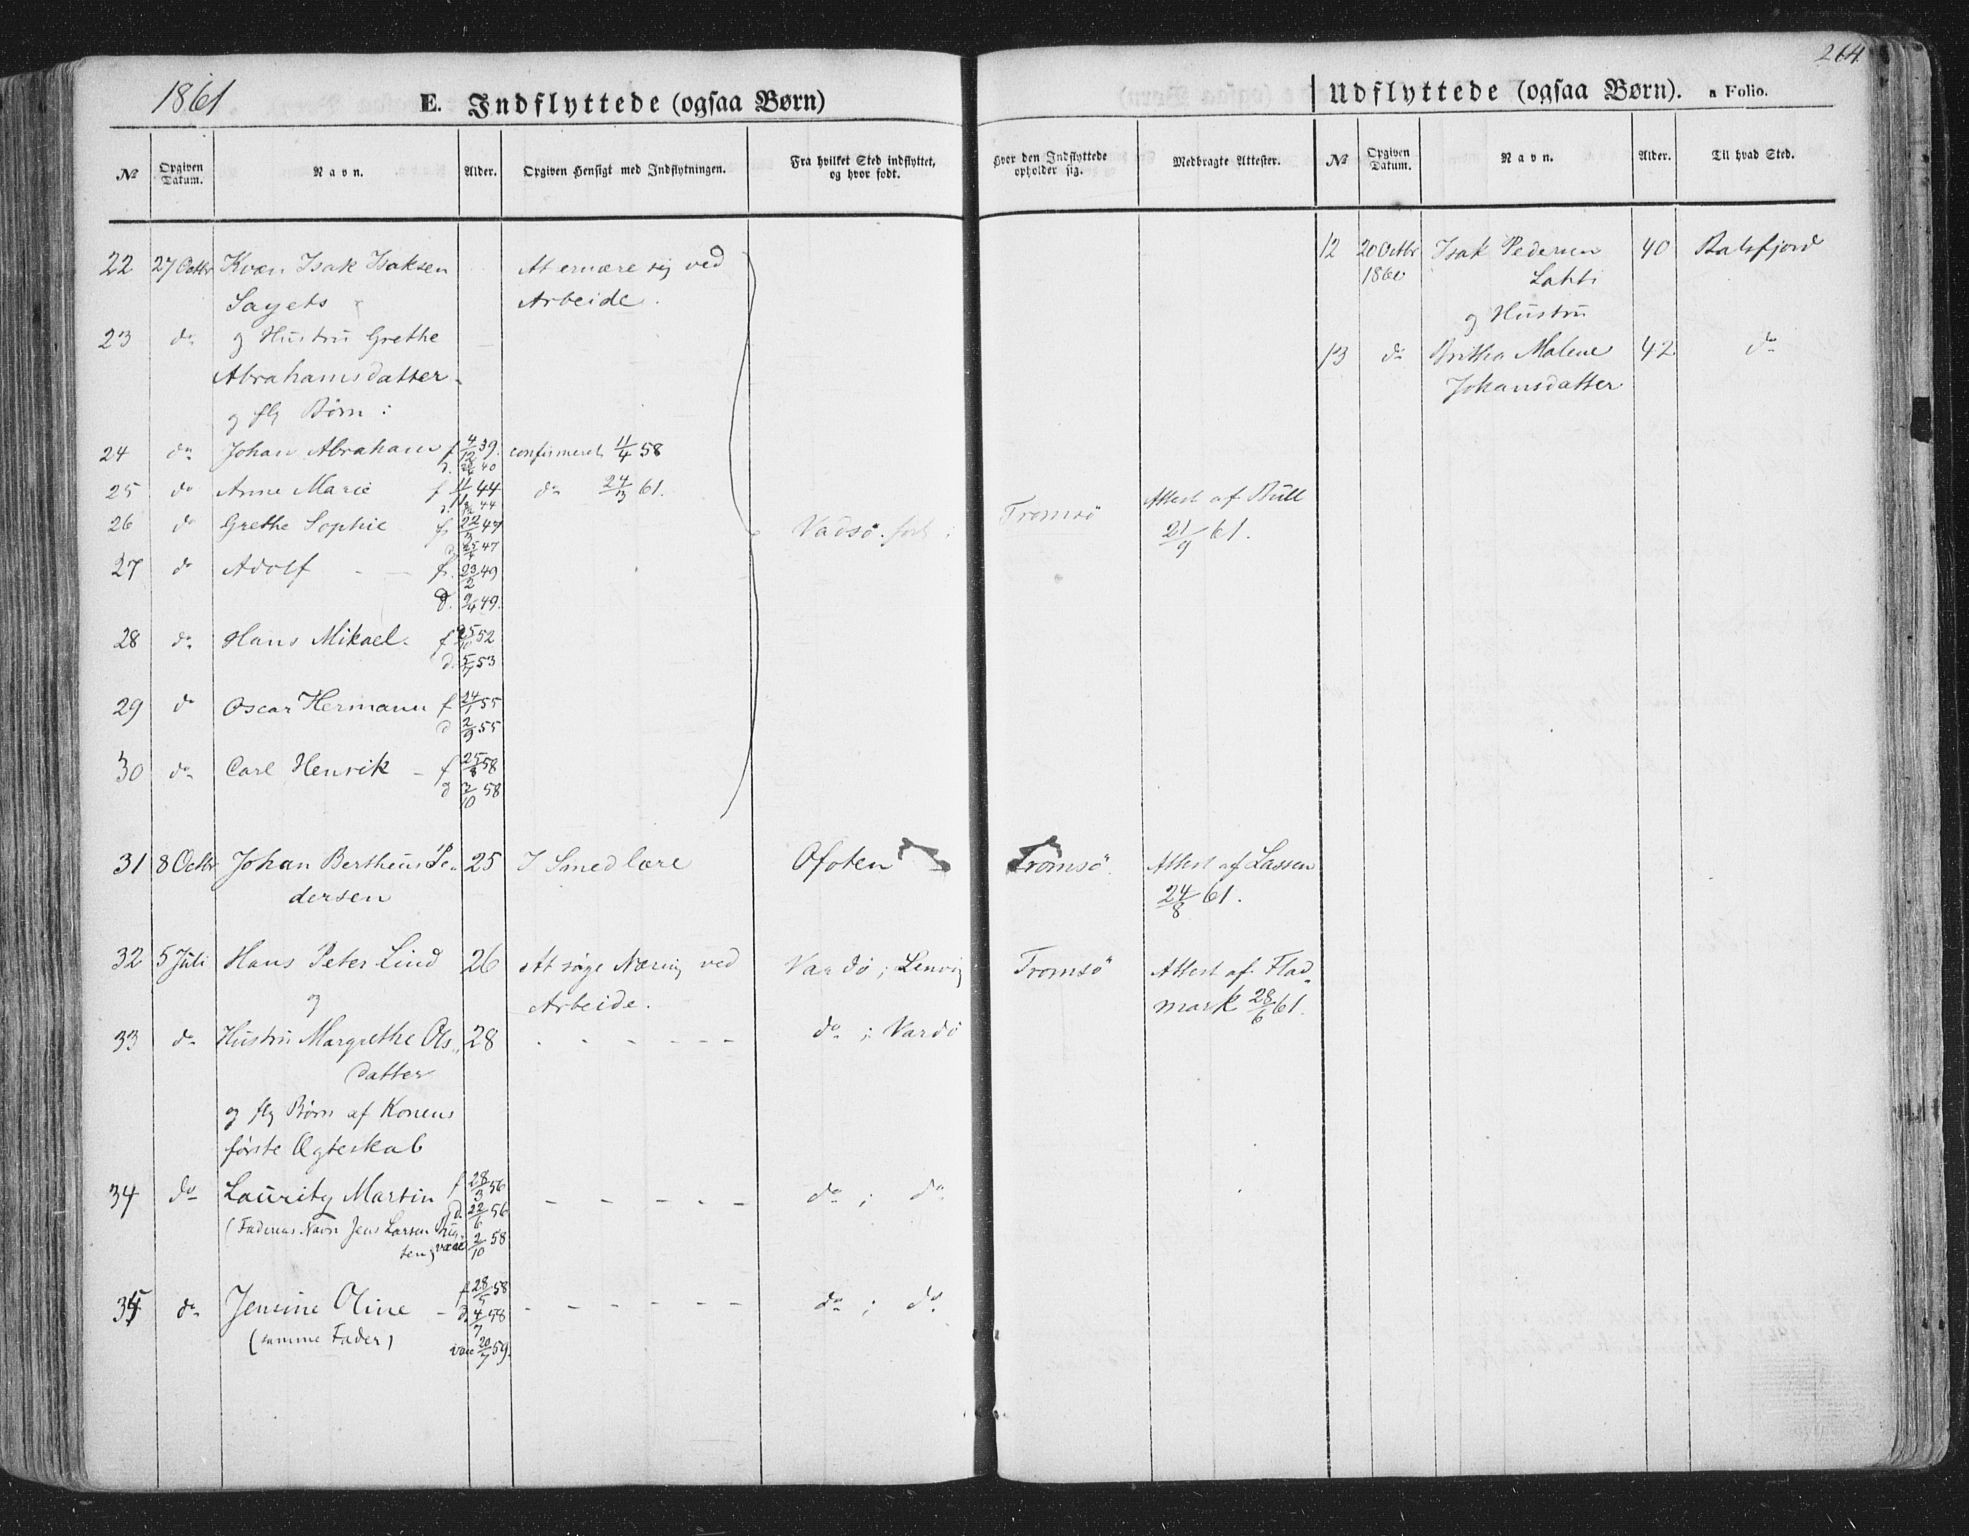 1861
E. Indflyttede (ogsaa Børn)
№ Opgiven Datum. Navn. Alder. Opgiven Hensigt med Indflytningen. Fra hvilket Sted indflyttet, og hvor født.
22 27 Octbr Kvæn Isak Isaksen At ernære sig ved
Sayets Arbeide.
23 do og Hustru Grethe
Abrahamsdatter
og flg Børn:
24 do Johan Abraham f 4/12 39. confirmeret 11/4 58
25 do Anne Marie f 11/1 44 do 24/3 61.
26 do Grethe Sophie f. 22/3 47 Vadsö. født
d. 25/4 47
27 do Adolf f. 23/2 49
d. 9/4 49.
28 do Hans Mikael. f 25/11 52
d. 5/7 53
29 do Oscar Hermann f 24/1 55
d 2/9 55
30 do Carl Henrik f 25/8 58
d 3/10 58
31 8 Octbr Johan Bertheus Pe- 25 I Smedlære Ofoten
dersen
32 5 Juli Hans Peter Lind 26 At söge Næring ved Vardö; Lenvig
og Arbeide.
33 do Hustru Margrethe Ols- 28 - - - - - - do; Vardö
datter
og flg Børn af Konens
förste Ægteskab
34 do Lauritz Martin f 28/3 56 - - - - - do; do
d. 22/6 56
(Faderens Navn Jens Larsen
vacc 2/10 58
35 do Jensine Oline f 28/5 58 - - - - - - do; do
d. 4/7 58
(samme Fader)
vac 20/7 59.
264
Udflyttede (ogsaa Børn). a Folio.
Hvor den Indflyttede opholder sig. Medbragte Attester. № Opgiven Datum. Navn. Alder. Til hvad Sted.
12 20 Octbr Isak Pedersen 40 Balsfjord
1860 Lahti
og Hustru
13 do Britha Malene 42 do
Johansdatter
Tromsö Attest af Bull
21/9 61.
Tromsö. Attest af Lassen
24/8 61.
Tromsö Attest af Flad-
mark 28/6 61.